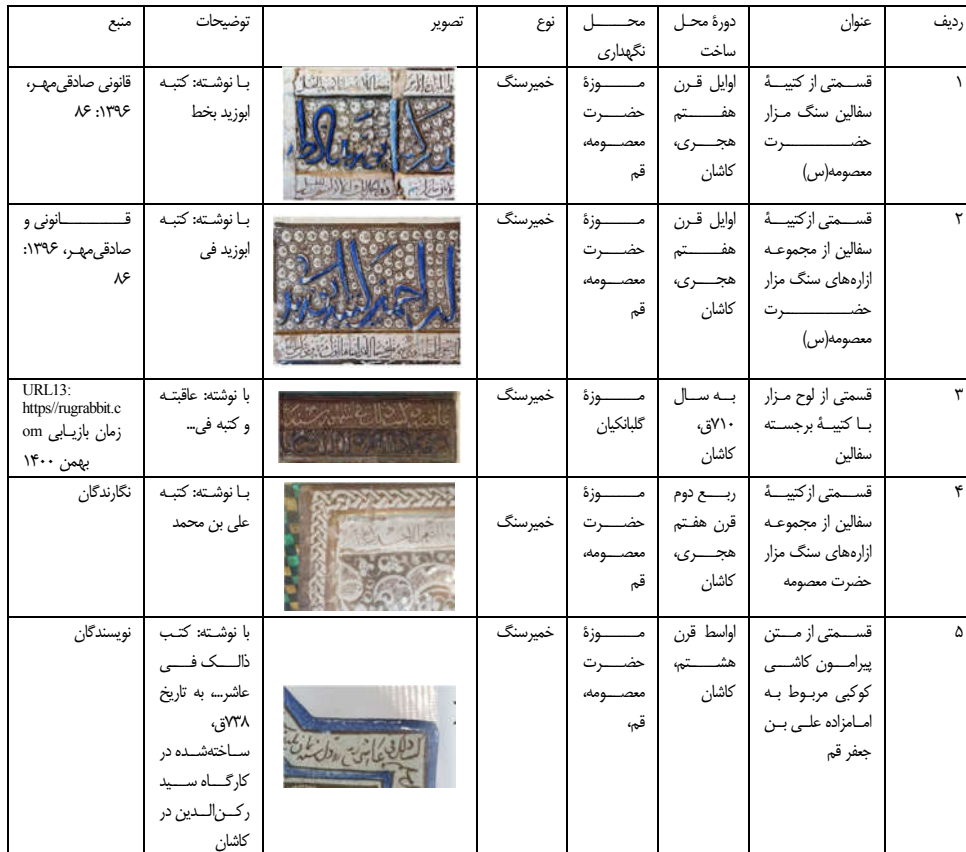 ردیف عنوان دورۀ محل ساخت محل نگهداری نوع تصویر توضیحات منبع
۱
قسمتی از کتیبۀ
سفالین سنگ مزار
حضرت
معصومه(س)
اوایل قرن
هفتم
هجری،
کاشان
موزۀ
حضرت
معصومه،
قم
خمیرسنگ
با نوشته: کتبه
ابوزید بخط
قانونی صادقی‌مهر،
۱۳۹۶: ۸۶
۲
قسمتی ازکتیبۀ
سفالین از مجموعه
ازاره‌های سنگ مزار
حضرت
معصومه(س)
اوایل قرن
هفتم
هجری،
کاشان
موزۀ
حضرت
معصومه،
قم
خمیرسنگ
با نوشته: کتبه
ابوزید فی
قانونی و
صادقی‌مهر، ۱۳۹۶:
۸۶
۳
قسمتی از لوح مزار
با کتیبۀ برجسته
سفالین
به سال
۷۱۰ق،
کاشان
موزۀ
گلبانکیان
خمیرسنگ
با نوشته: عاقبته
و کتبه فی...
URL13:
https//rugrabbit.c
om زمان بازیابی
بهمن ۱۴۰۰
۴
قسمتی ازکتیبۀ
سفالین از مجموعه
ازاره‌های سنگ مزار
حضرت معصومه
ربع دوم
قرن هفتم
هجری،
کاشان
موزۀ
حضرت
معصومه،
قم
خمیرسنگ
با نوشته: کتبه
علی بن محمد
نگارندگان
۵
قسمتی از متن
پیرامون کاشی
کوکبی مربوط به
امامزاده علی بن
جعفر قم
اواسط قرن
هشتم،
کاشان
موزۀ
حضرت
معصومه،
قم،
خمیرسنگ
با نوشته: کتب
ذالک فی
عاشر...، به تاریخ
۷۳۸ق،
ساخته‌شده در
کارگاه سید
رکن‌الدین در
کاشان
نویسندگان